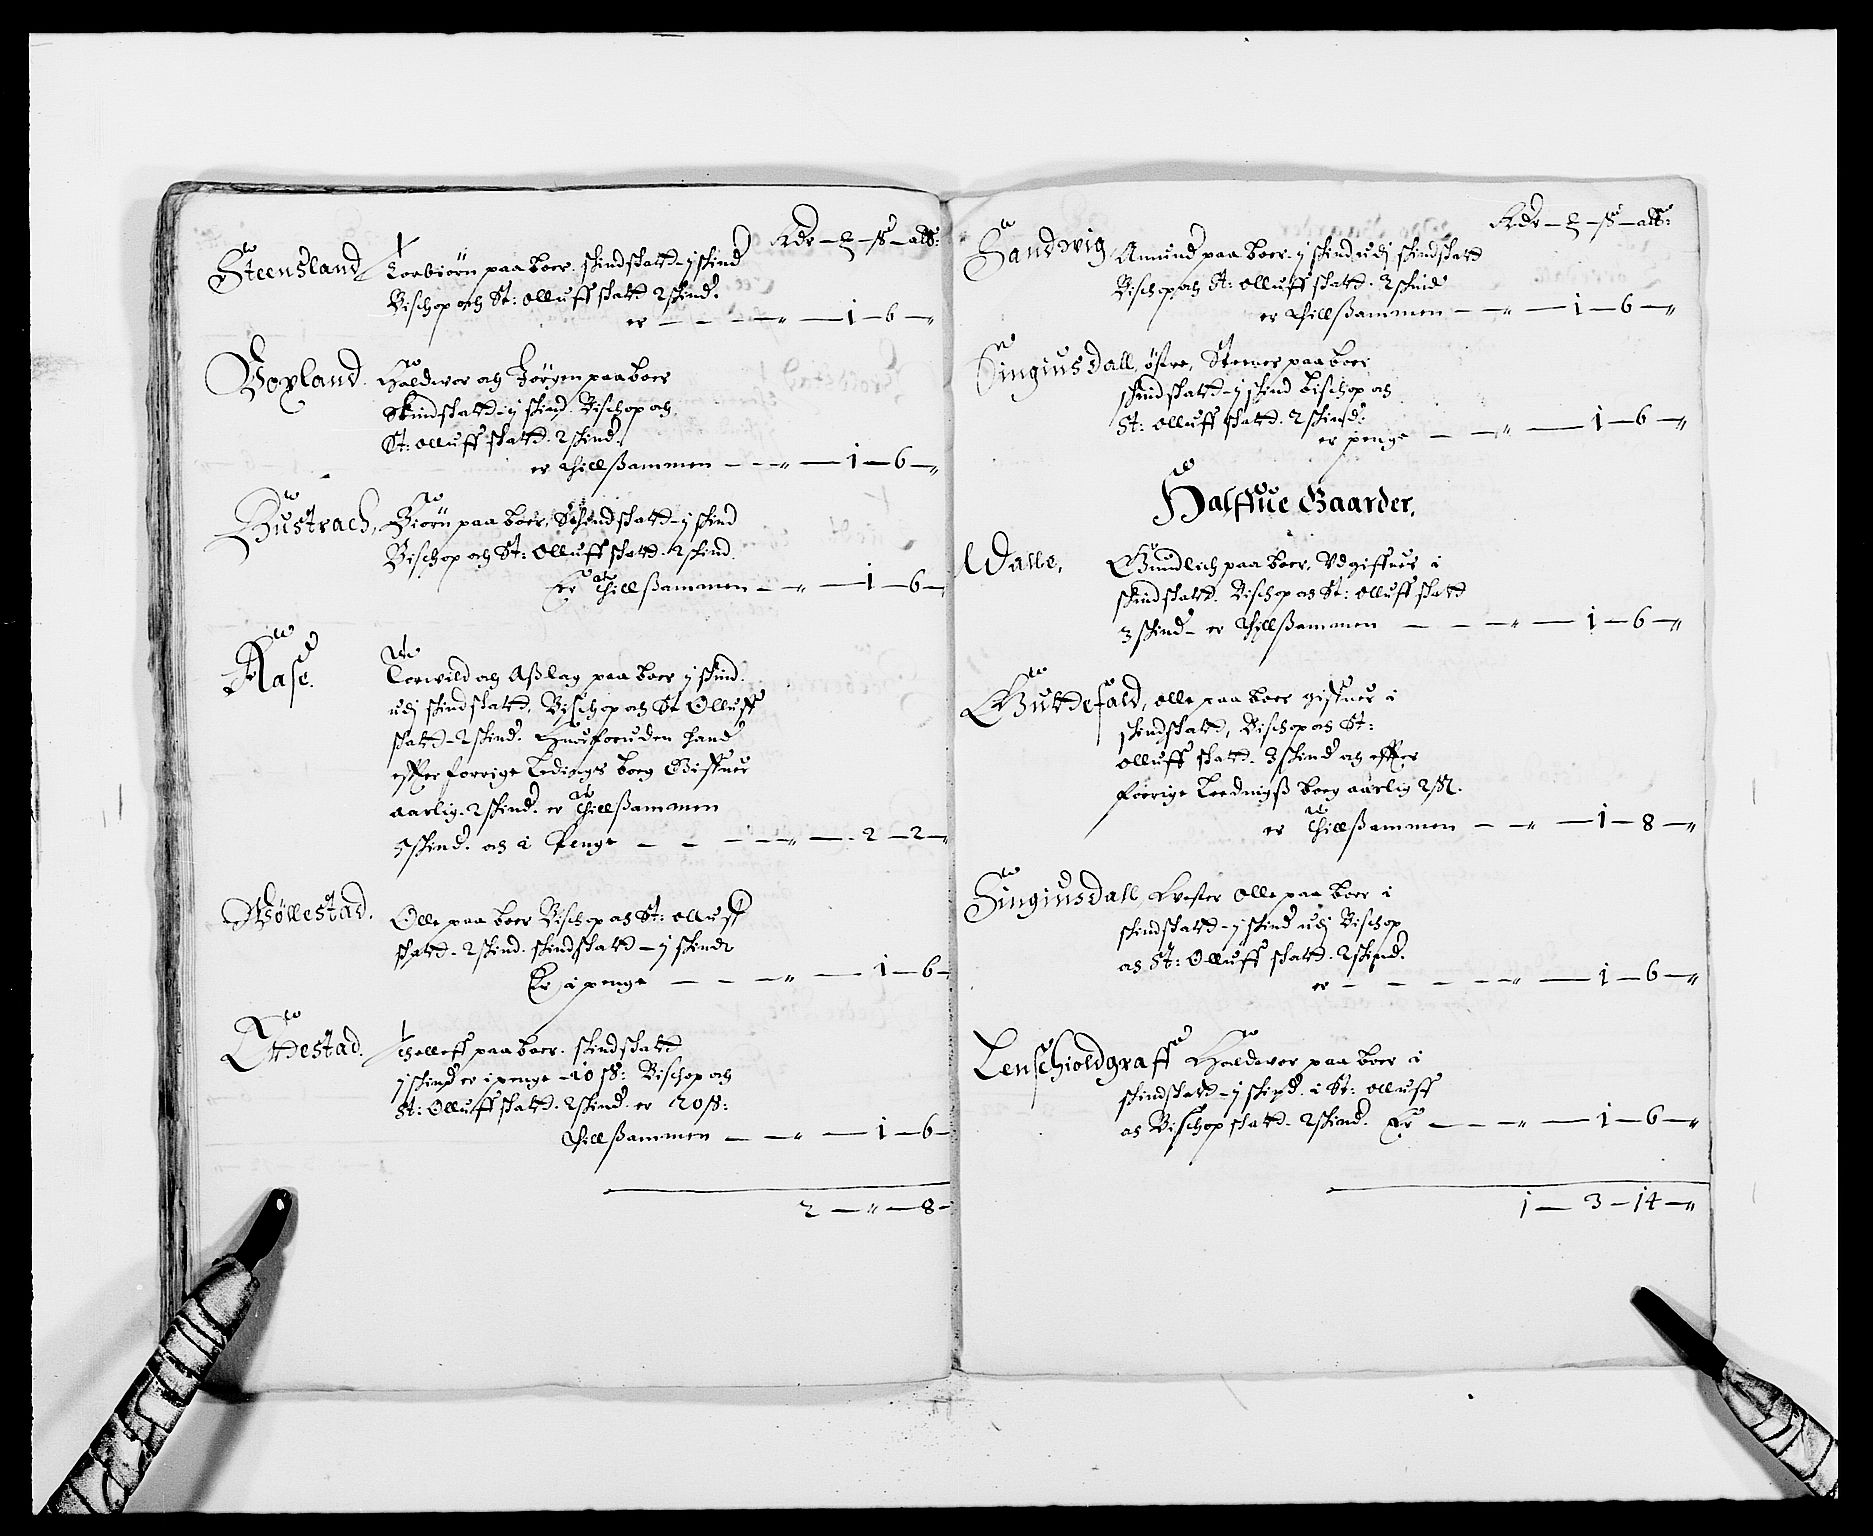 Rdr — — ß — alb:
Steensland Torbiørn paa boer. skindskatt - j skind
Bischop och St: Olluff skatt 2 skind.
er — — — „ — 1 — 6 — „
Voxland. Haldwor och Jørgen paaboer
Skindskatt - j skind. Bischop och
St: olluff skatt. 2 skind.
er thillßammen — — „ — 1 — 6 — „
Bustrach, Biørn paa boer, Skindskatt - j skind
Bischop och St: Olluff skatt. 2 skind.
Er thillßammen — „ — 1 — 6 —
Aase. Torwild och Aßlag paa boer j skind.
udj skindskatt, Bischop och St Olluff
skatt - 2 skind. Huorforuden hand
effter forrige Ledings boeg Giffuer
aarlig. 2 skind. er thillßammen
5 skind. och i Penge — — — „ — 2 — 2 — „
Møllestad. Olle paa boer Bischop och St: olluff
skatt - 2 skind. skindskatt - j skind
Er i penge — — „ — 1 — 6 —
Ettestad. Tolleff paa boer. skindskatt
j skind er i penge - 10 ß: Bischop och
St: Olluff skatt. 2 skind. er 20 ß:
thillßammen — — „ — 1 — 6 —
2 — „ — 8 —
Rdr — — ß — alb:
Sandwig Amund paa boer. j skind udj skindskatt
Bischop och St: Olluff skatt. 2 skind
er thillßammen — „ — 1 — 6 — „
Singiusdall, østre, Steener paa boer
skindskatt - j skind bischop och
St: olluff skatt. 2 skind.
er penge — — „ — 1 — 6 — „
Halffue Gaarder.
Walle, Gundlich paa boer, Vdgiffuer i
skindskatt. Bischop och St: olluff skatt
3 skind - er thillßammen — — — „ — 1 — 6 — „
Guttefald, olle paa boer giffuer i
skindskatt, Bischop och St:
olluff skatt. 3 skind och effter
forrige Leednigß boeg aarlig 2 ß.
er thillßammen — „ — 1 — 8 — „
Singiusdall Wester Olle paa boer i
skindskatt - j skind udj Bischop
och St: Olluff skatt. 2 skind.
er — — — — „ — 1 — 6 — „
Lenschioldgraff Haldwor paa boer i
skindskatt - j skind. i St: olluff
och Bischop skatt. 2 skind. Er — — „ — 1 — 6 — „
1 — 3 — 14 — „